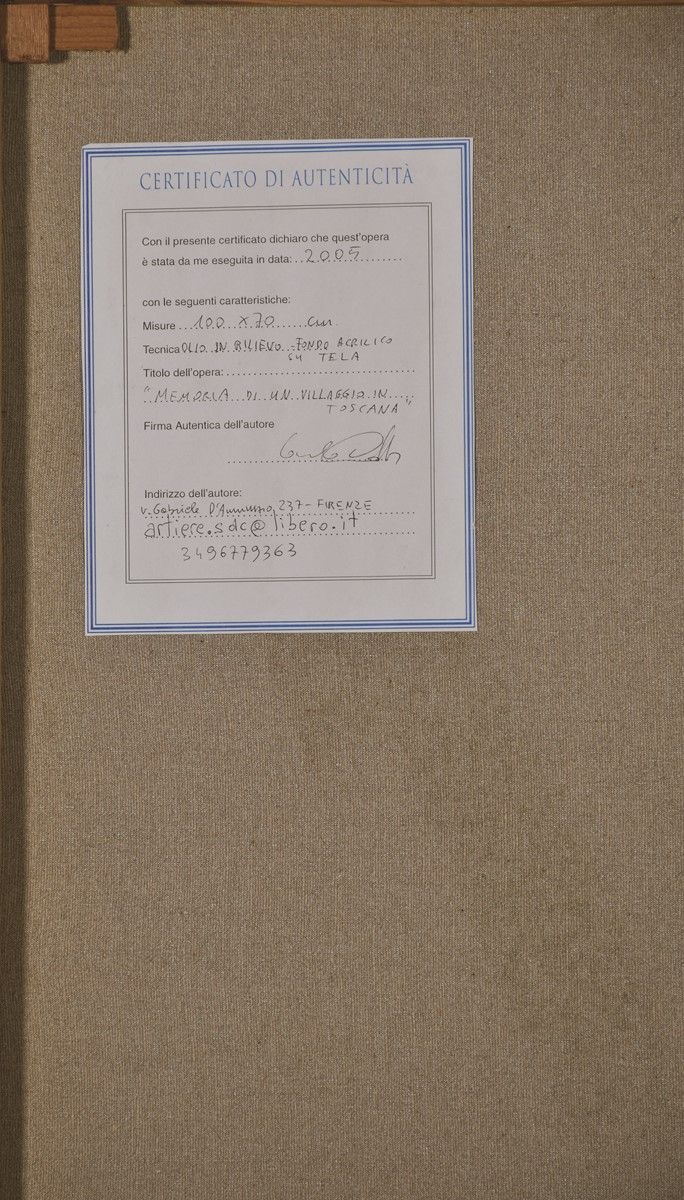 CERTIFICATO DI AUTENTICITÀ
Con il presente certificato dichiaro che quest'opera
è stata da me eseguita in data: 2005
con le seguenti caratteristiche:
Misure 100 x 70 cm
Tecnica OLIO IN RILIEVO - FONDO ACRILICO
SU TELA
Titolo dell'opera:
"MEMORIA DI UN VILLAGGIO IN
TOSCANA"
Firma Autentica dell'autore
Indirizzo dell'autore:
v. Gabriele D'Annunzio, 237 - FIRENZE
artiere.sdc@libero.it
3496779363